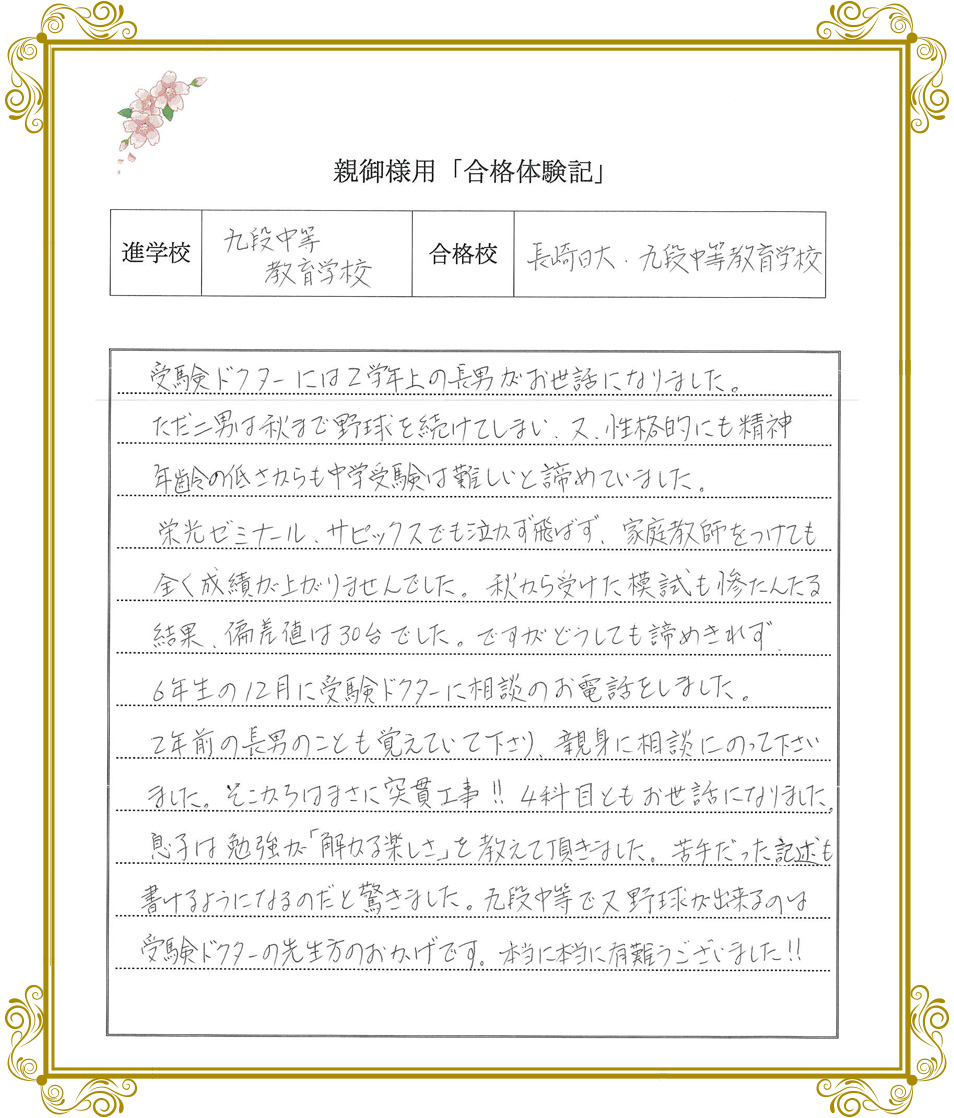 親御様用「合格体験記」
進学校
九段中等
教育学校
合格校
長崎日大・九段中等教育学校
受験ドクターには2学年上の長男がお世話になりました。
ただ二男は秋まで野球を続けてしまい、又、性格的にも精神
年齢の低さからも中学受験は難しいと諦めていました。
栄光ゼミナール、サピックスでも泣かず飛ばず、家庭教師をつけても
全く成績が上がりませんでした。秋から受けた模試も惨たんたる
結果、偏差値は30台でした。ですがどうしても諦めきれず、
6年生の12月に受験ドクターに相談のお電話をしました。
2年前の長男のことも覚えていて下さり、親身に相談にのって下さい
ました。そこからはまさに突貫工事!! 4科目ともお世話になりました。
息子は勉強が「解かる楽しさ」を教えて頂きました。苦手だった記述も
書けるようになるのだと驚きました。九段中等で又野球が出来るのは
受験ドクターの先生方のおかげです。本当に本当に有難うございました!!